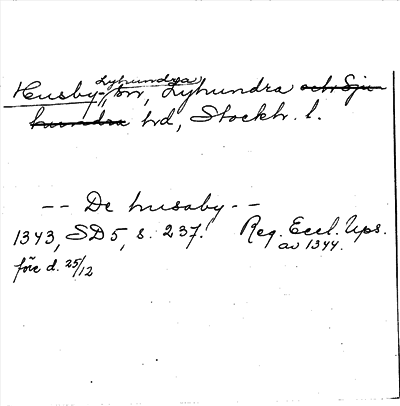 Husby-Lyhundra, sn, Lyhundra och Sju-
hundra hd, Stockh. l.
-- De husaby --
1343, SD 5, s. 237. Reg. Eccl. Ups.
före d. 25/12 av 1344.